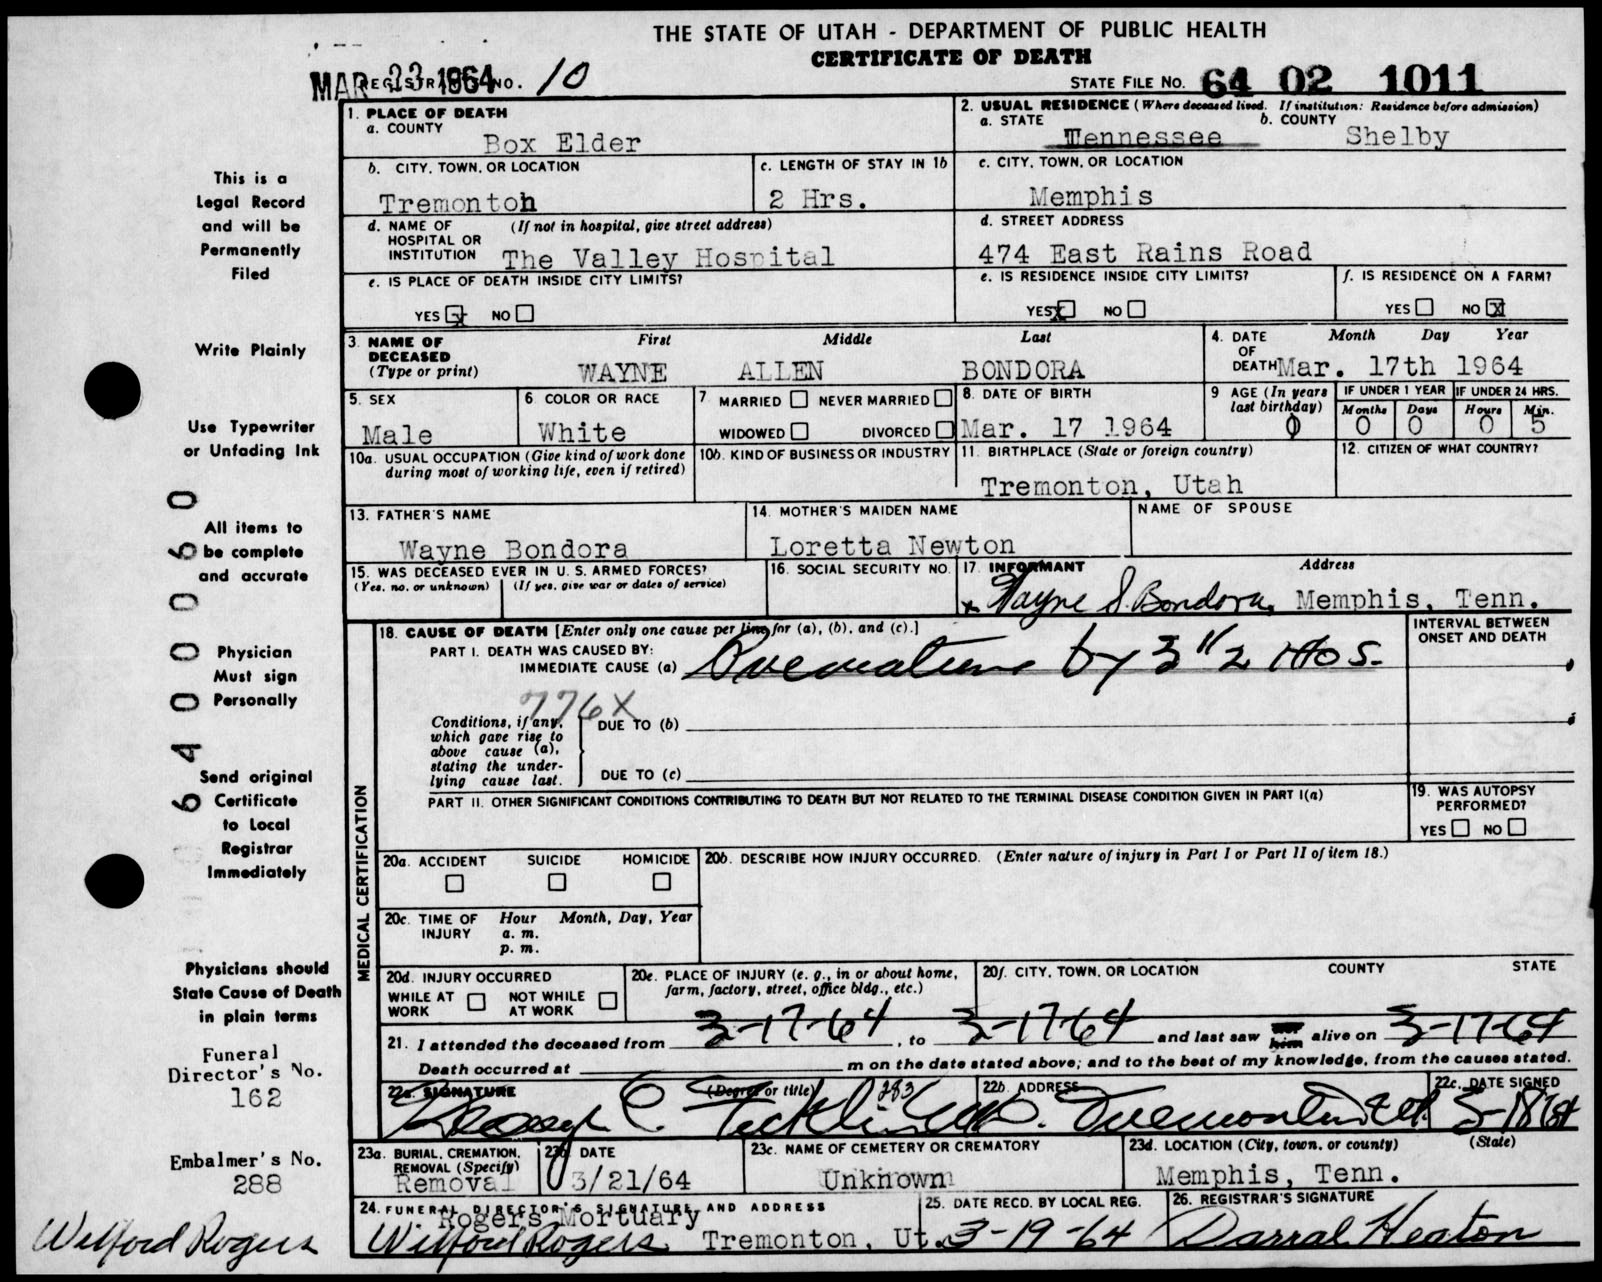 THE STATE OF UTAH - DEPARTMENT OF PUBLIC HEALTH
CERTIFICATE OF DEATH
MAR 23 1964 REGISTRAR'S NO. 10
STATE FILE NO. 64 02 1011
This is a
Legal Record
and will be
Permanently
Filed
Write Plainly
Use Typewriter
or Unfading Ink
All items to
be complete
and accurate
Physician
Must sign
Personally
Send original
Certificate
to Local
Registrar
Immediately
Physicians should
State Cause of Death
in plain terms
Funeral
Director's No.
162
Embalmer's No.
288
Wilford Rogers
64000060
1. PLACE OF DEATH
a. COUNTY
Box Elder
2. USUAL RESIDENCE (Where deceased lived. If institution: Residence before admission)
a. STATE b. COUNTY
Tennessee Shelby
b. CITY, TOWN, OR LOCATION
Tremonton
c. LENGTH OF STAY IN 1b
2 Hrs.
c. CITY, TOWN, OR LOCATION
Memphis
d. NAME OF HOSPITAL OR INSTITUTION (If not in hospital, give street address)
The Valley Hospital
d. STREET ADDRESS
474 East Rains Road
e. IS PLACE OF DEATH INSIDE CITY LIMITS?
YES X NO
e. IS RESIDENCE INSIDE CITY LIMITS?
YES X NO
f. IS RESIDENCE ON A FARM?
YES NO X
3. NAME OF DECEASED (Type or print) First Middle Last
WAYNE ALLEN BONDORA
4. DATE OF DEATH Month Day Year
Mar. 17th 1964
5. SEX
Male
6. COLOR OR RACE
White
7. MARRIED NEVER MARRIED
WIDOWED DIVORCED
8. DATE OF BIRTH
Mar. 17 1964
9 AGE (In years last birthday)
0
IF UNDER 1 YEAR IF UNDER 24 HRS.
Months Days Hours Min.
0 0 0 5
10a. USUAL OCCUPATION (Give kind of work done during most of working life, even if retired)
10b. KIND OF BUSINESS OR INDUSTRY
11. BIRTHPLACE (State or foreign country)
Tremonton, Utah
12. CITIZEN OF WHAT COUNTRY?
13. FATHER'S NAME
Wayne Bondora
14. MOTHER'S MAIDEN NAME
Loretta Newton
NAME OF SPOUSE
15. WAS DECEASED EVER IN U. S. ARMED FORCES?
(Yes, no, or unknown) (If yes, give war or dates of service)
16. SOCIAL SECURITY NO.
17. INFORMANT Address
x Wayne S. Bondora, Memphis, Tenn.
MEDICAL CERTIFICATION
18. CAUSE OF DEATH [Enter only one cause per line for (a), (b), and (c).]
PART I. DEATH WAS CAUSED BY:
IMMEDIATE CAUSE (a) by 3 1/2 Mos.
INTERVAL BETWEEN ONSET AND DEATH
776X
Conditions, if any, which gave rise to above cause (a), stating the underlying cause last.
DUE TO (b)
DUE TO (c)
PART II. OTHER SIGNIFICANT CONDITIONS CONTRIBUTING TO DEATH BUT NOT RELATED TO THE TERMINAL DISEASE CONDITION GIVEN IN PART I(a)
19. WAS AUTOPSY PERFORMED?
YES NO
20a. ACCIDENT SUICIDE HOMICIDE
20b. DESCRIBE HOW INJURY OCCURRED. (Enter nature of injury in Part I or Part II of item 18.)
20c. TIME OF INJURY Hour Month, Day, Year
a. m.
p. m.
20d. INJURY OCCURRED
WHILE AT WORK NOT WHILE AT WORK
20e. PLACE OF INJURY (e. g., in or about home, farm, factory, street, office bldg., etc.)
20f. CITY, TOWN, OR LOCATION COUNTY STATE
21. I attended the deceased from 3-17-64, to 3-17-64 and last saw him alive on 3-17-64
Death occurred at m on the date stated above; and to the best of my knowledge, from the causes stated.
22a. SIGNATURE (Degree or title) 283
22b. ADDRESS
Tremonton Ut.
22c. DATE SIGNED
3-18-64
23a. BURIAL, CREMATION, REMOVAL (Specify)
Removal
23b. DATE
3/21/64
23c. NAME OF CEMETERY OR CREMATORY
Unknown
23d. LOCATION (City, town, or county) (State)
Memphis, Tenn.
24. FUNERAL DIRECTOR'S SIGNATURE AND ADDRESS
Rogers Mortuary
Wilford Rogers Tremonton, Ut.
25. DATE RECD. BY LOCAL REG.
3-19-64
26. REGISTRAR'S SIGNATURE
Darral Heaton